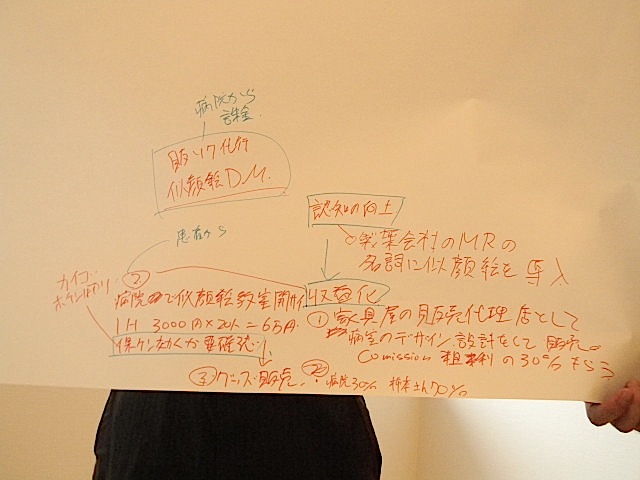 病院から
課金
販ソク代行
似顔絵DM.
認知の向上
製薬会社のMRの
名詞に似顔絵を導入
患者から
カイゴ
②
病院で似顔絵教室開サイ
1H 3000円×20人=6万円
保ケン効くか要確認
収益化
①家具屋の販売代理店として
病室のデザイン設計をして販売。
Comission 粗利の30%もらう
③グッズ販売
病院30% 橋本さん70%